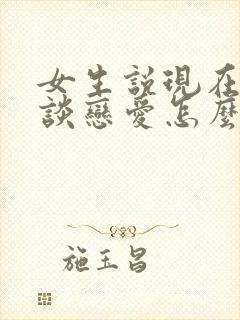 女生說現在
談戀愛怎麼
施玉昌